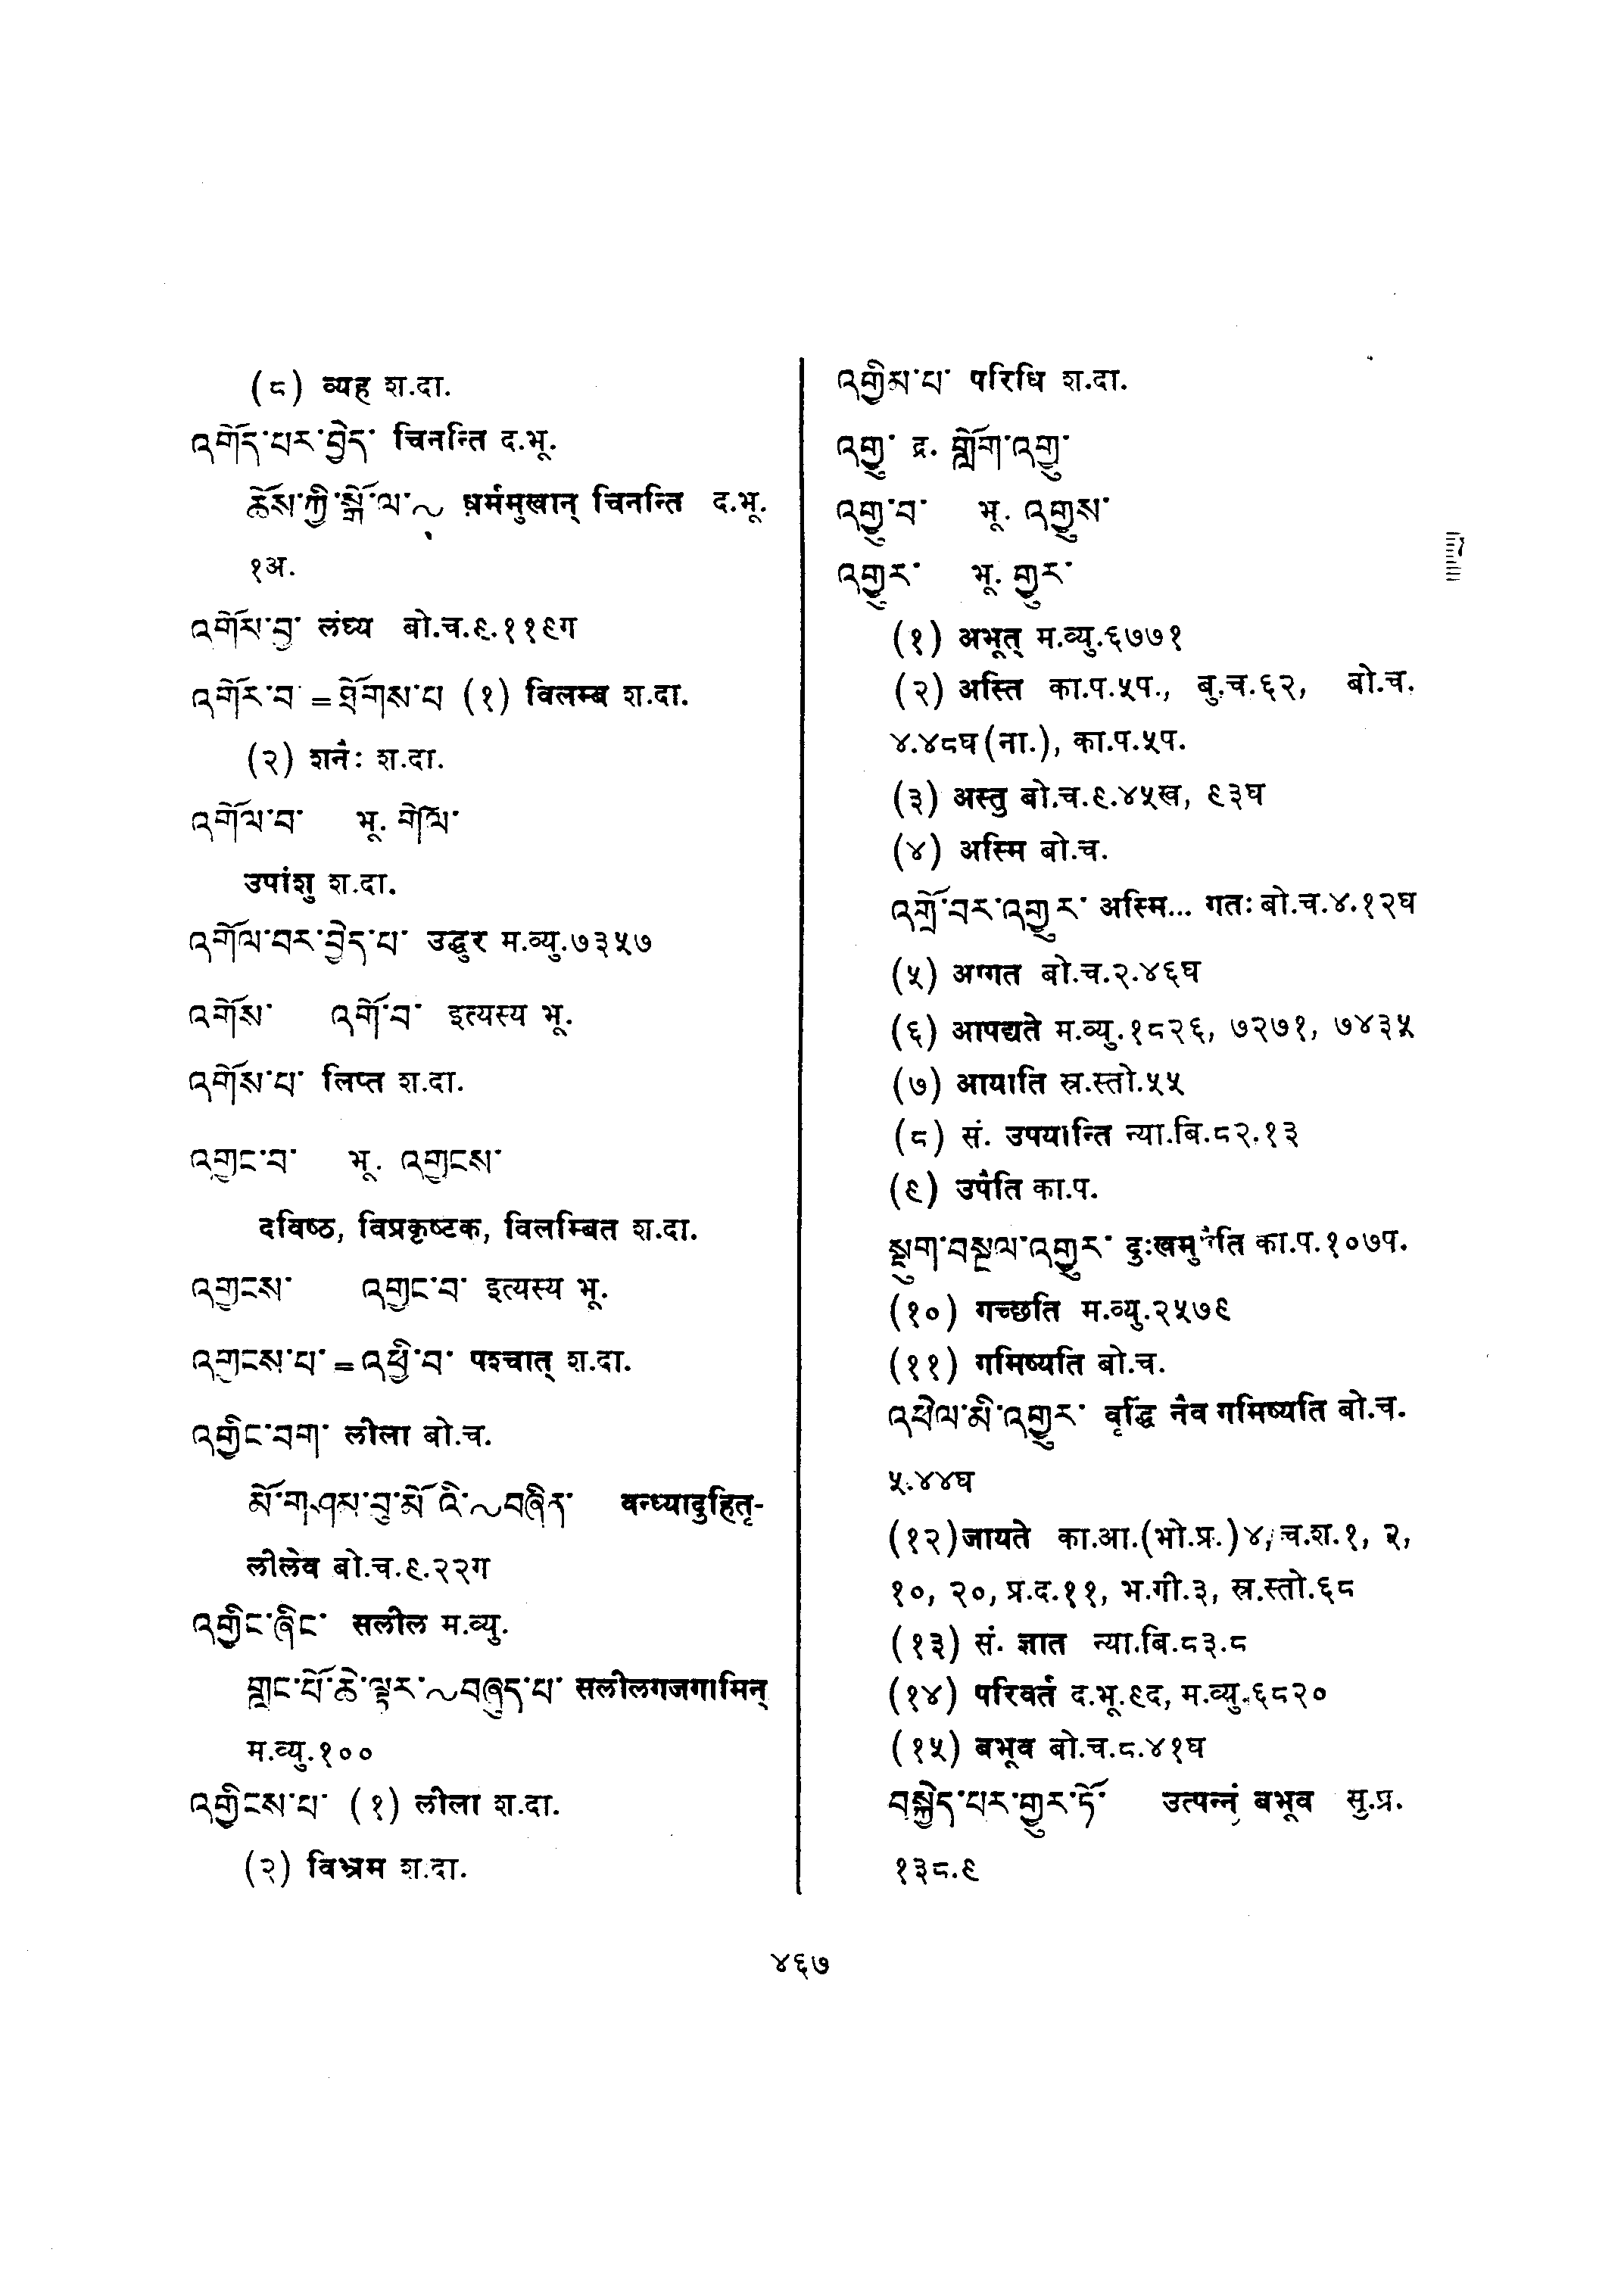 (८) व्यह श.दा.
འགོད་པར་བྱེད་ चिनन्ति द.भू.
ཆོས་ཀྱི་སྒོ་ལ་~ धर्ममुखान् चिनन्ति द.भू.
१अ.
འགོམ་བྱ་ लंघ्य बो.च.९.११९ग
འགོར་བ = ཐོགས་པ (१) विलम्ब श.दा.
(२) शनैः श.दा.
འགོལ་བ་ भू. གོལ་
उपांशु श.दा.
འགོལ་བར་བྱེད་པ་ उद्धुर म.व्यु.७३५७
འགོས་ འགོ་བ་ इत्यस्य भू.
འགོས་པ་ लिप्त श.दा.
འགྱང་བ་ भू. འགྱངས་
दविष्ठ, विप्रकृष्टक, विलम्बित श.दा.
འགྱངས་ འགྱང་བ་ इत्यस्य भू.
འགྱངས་པ་ = འཕྱི་བ་ पश्चात् श.दा.
འགྱིང་བག་ लीला बो.च.
མོ་གཤམ་བུ་མོ་འི་~བཞིན་ वन्ध्यादुहितृ-
लीलेव बो.च.९.२२ग
འགྱིང་ཞིང་ सलील म.व्यु.
གླང་པོ་ཆེ་ལྟར་~བཞུད་པ་ सलीलगजगामिन्
म.व्यु.१००
འགྱིངས་པ་ (१) लीला श.दा.
(२) विभ्रम श.दा.
འགྱིམ་པ་ परिधि श.दा.
འགྱུ་ द्र. གློག་འགྱུ་
འགྱུ་བ་ भू. འགྱུས་
འགྱུར་ भू. གྱུར་
(१) अभूत् म.व्यु.६७७१
(२) अस्ति का.प.५प., बु.च.६२, बो.च.
४.४८घ(ना.), का.प.५प.
(३) अस्तु बो.च.९.४५ख, ९३घ
(४) अस्मि बो.च.
འགྲོ་བར་འགྱུར་ अस्मि... गतः बो.च.४.१२घ
(५) अग्गत बो.च.२.४६घ
(६) आपद्यते म.व्यु.१८२६, ७२७१, ७४३५
(७) आयाति स्र.स्तो.५५
(८) सं. उपयान्ति न्या.बि.८२.१३
(९) उपैति का.प.
སྡུག་བསྔལ་འགྱུར་ का.प.१०७प.
(१०) गच्छति म.व्यु.२५७९
(११) गमिष्यति बो.च.
འཕེལ་མི་འགྱུར་ वृद्धि नैव गमिष्यति बो.च.
५.४४घ
(१२)जायते का.आ.(भो.प्र.)४, च.श.१, २,
१०, २०, प्र.द.११, भ.गी.३, स्र.स्तो.६८
(१३) सं. ज्ञात न्या.बि.८३.८
(१४) परिवर्त द.भू.९द, म.व्यु.६८२०
(१५) बभूव बो.च.८.४१घ
བསྐྱེད་པར་གྱུར་ཏོ་ उत्पन्नं बभूव सु.प्र.
१३८.९
४६७